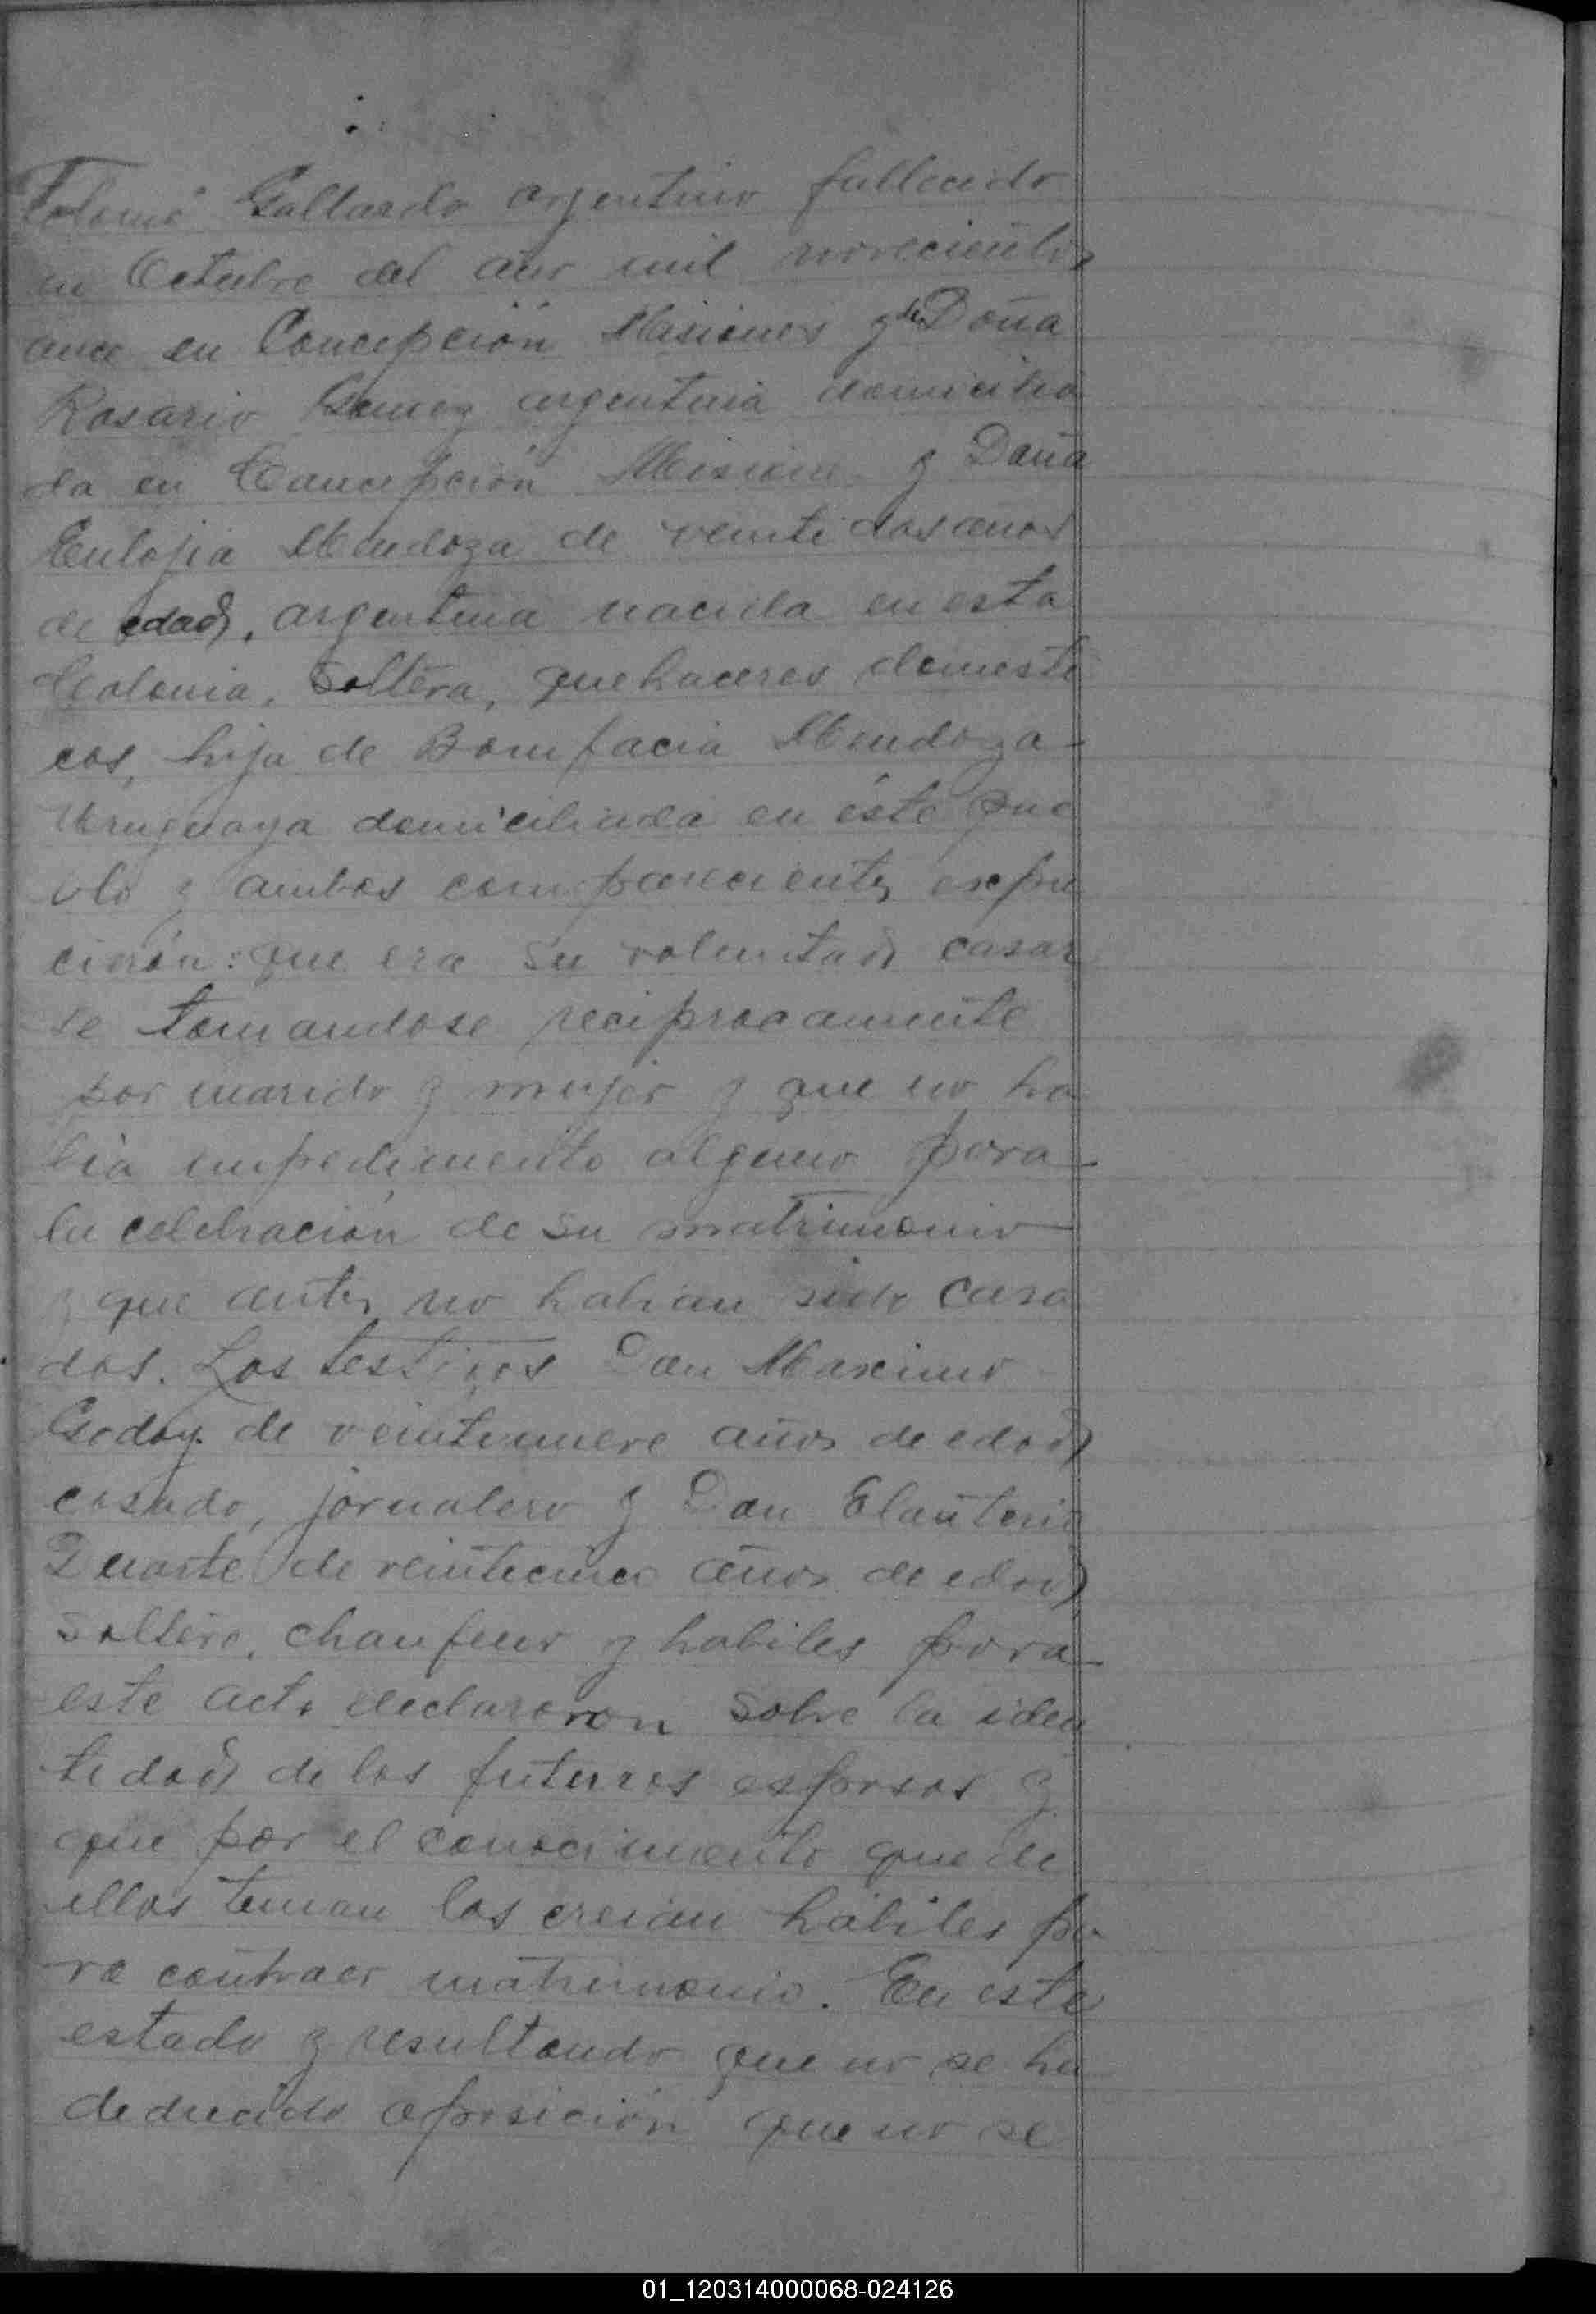 Tolomé Gallardo argentino fallecido
en Octubre del año mil novecientos
once en Concepción Misiones y de Doña
Rosario Gomez argentina domicilia
da en Concepción Misiones y Doña
Eulojia Mendoza de veinti dos años
de edad, argentina nacida en esta
Colonia, Soltera, quehaceres domesti
cos, hija de Bonifacia Mendoza
Uruguaya domiciliada en éste pue
blo y ambos comparecientes expu
cieron: que era su voluntad casar
se tomandose reciprocamente
por marido y mujer y que no ha
bia impedimento alguno para
la celebración de su matrimonio
y que antes no habian sido casa
dos. Los testigos Don Maximo
Godoy de veintinueve años de edad
casado, jornalero y Don Elauterio
Duarte de veinticinco años de edad
soltero, chaufeur y habiles para
este acto declararon sobre la iden
tidad de los futuros esposos y
que por el conocimiento que de
ellos tenian los creian habiles pa
ra contraer matrimonio. En este
estado y resultando que no se ha
deducido oposición que no se
01_120314000068-024126